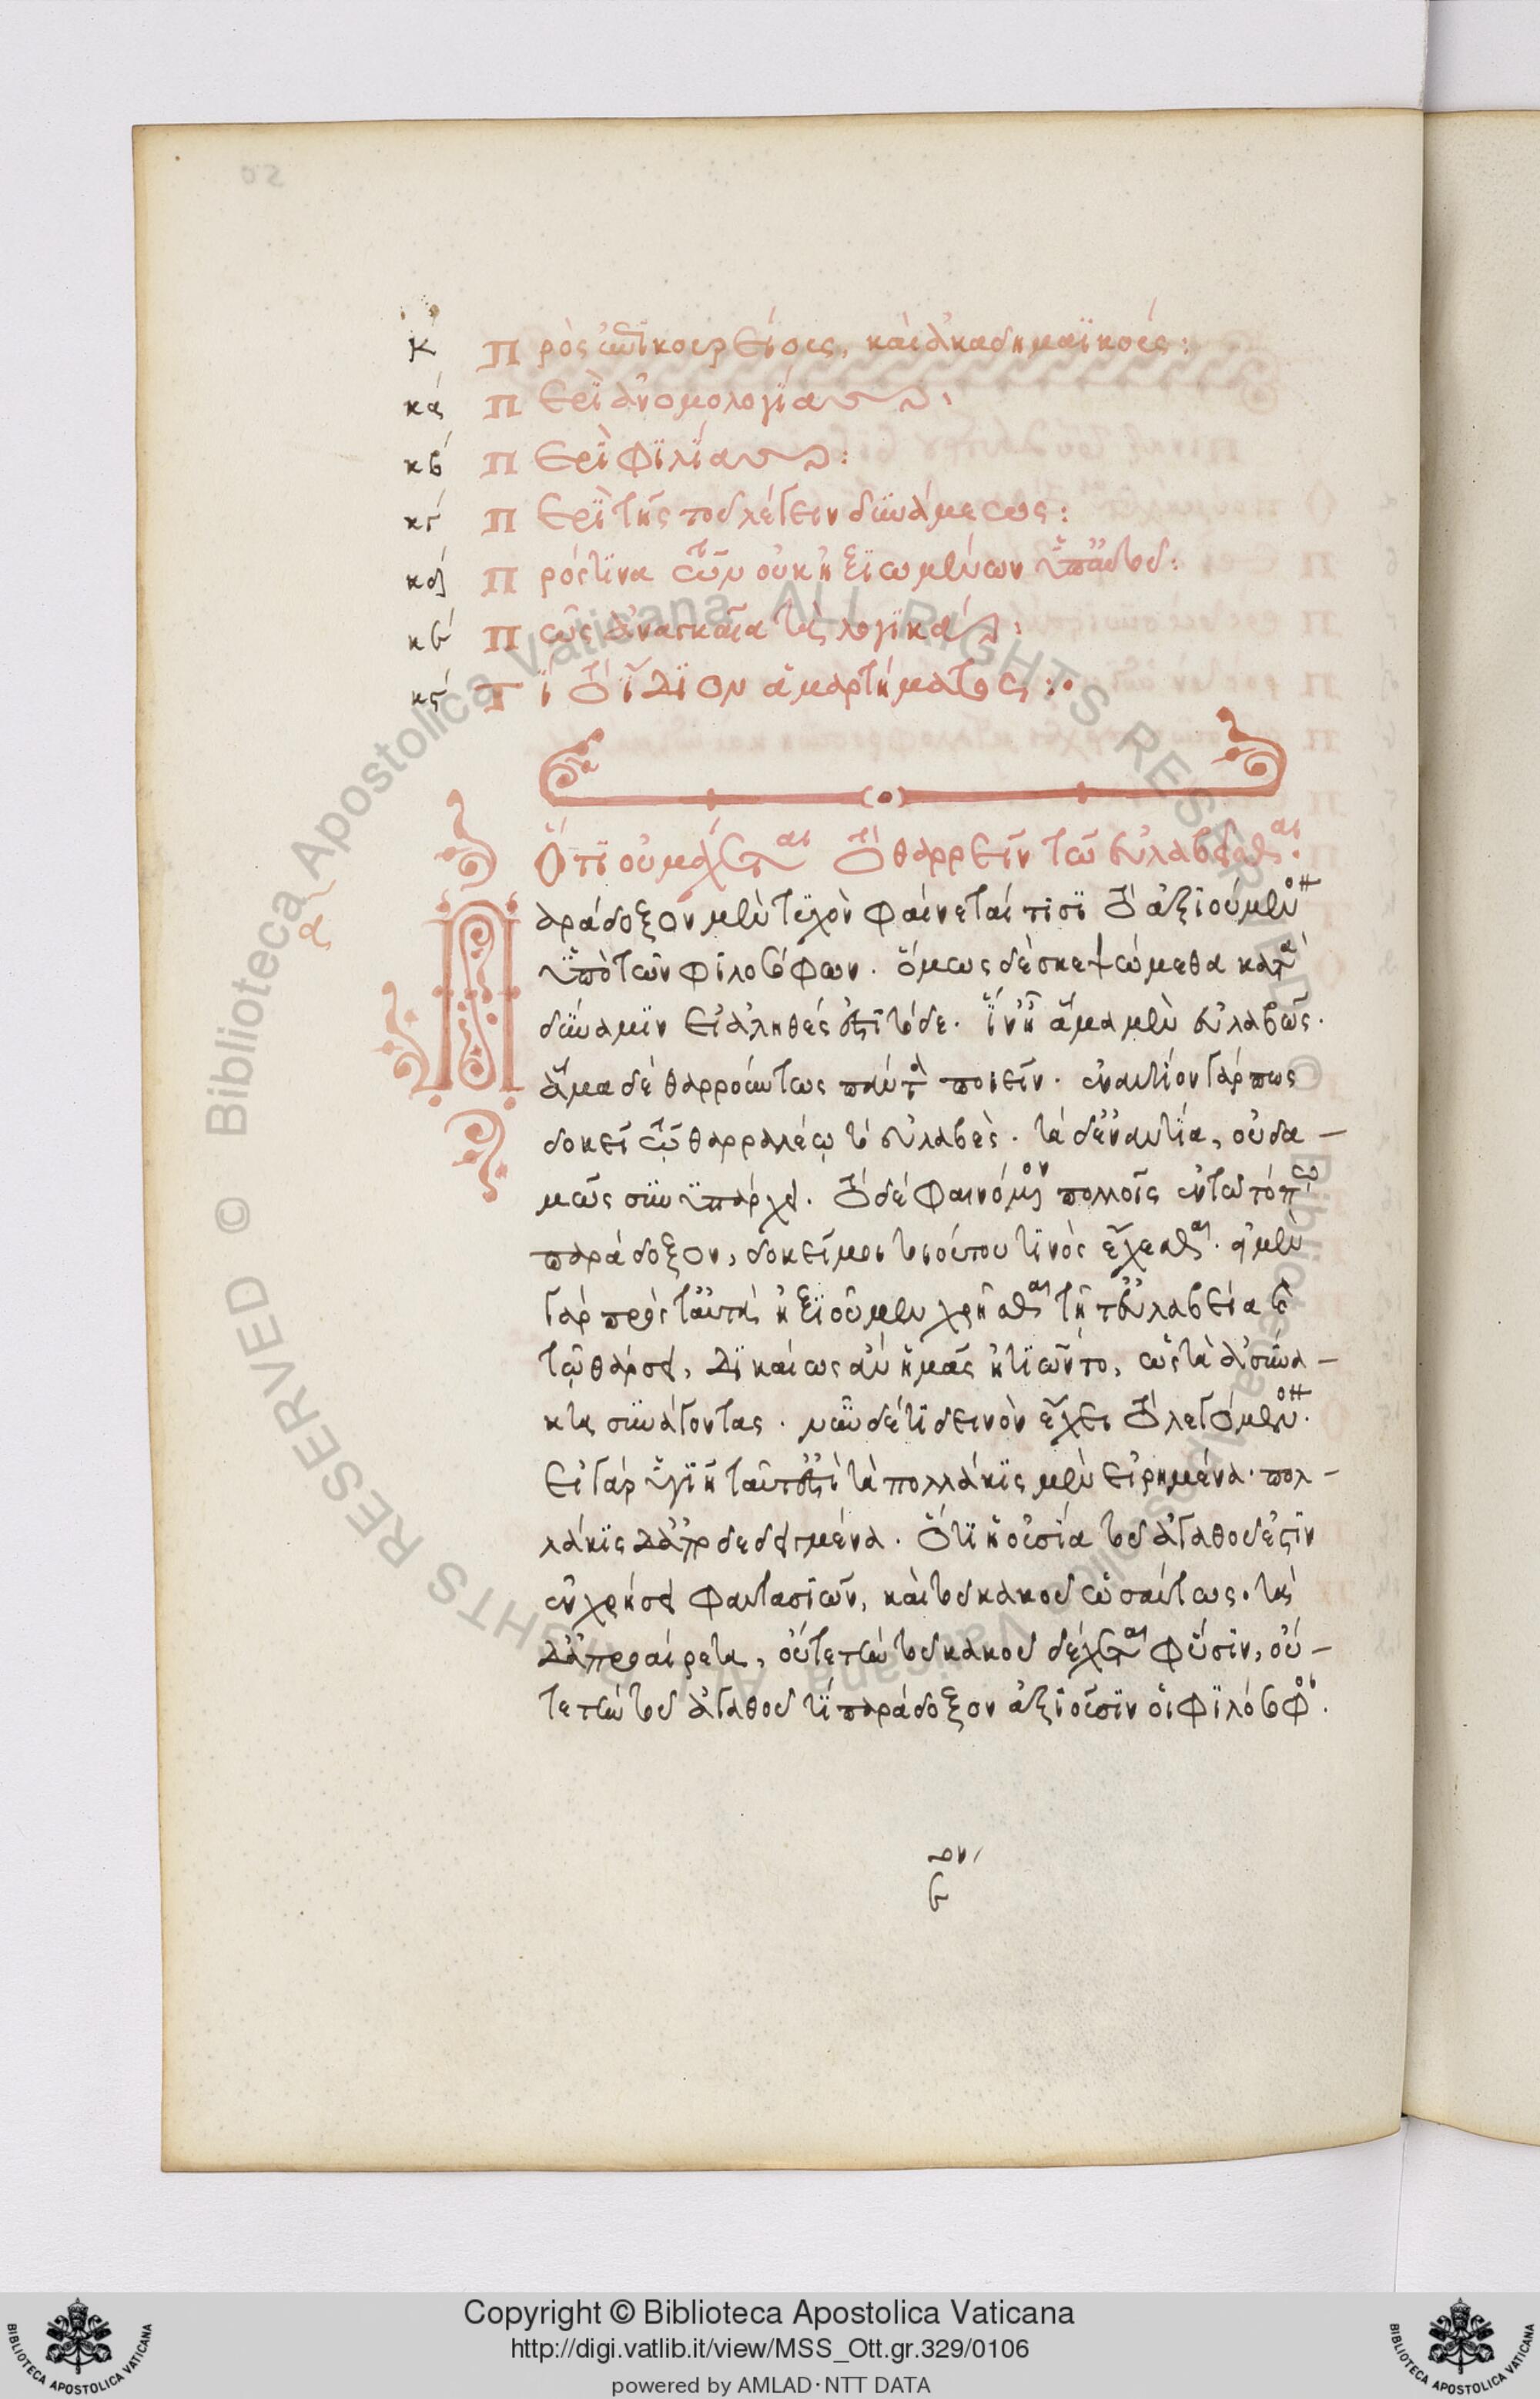 κ Πρὸς ἐπικουρείους, καὶ ἀκαδημαϊκούς:
κα Περὶ ἀνομολογίας:
κβ Περὶ φιλίας:
κγ Περὶ τῆς τοῦ λέγειν δυνάμεως:
κδ Πρός τινα τῶν οὐκ ἠξιωμένων ὑπ' αὐτοῦ:
κε Πῶς ἀναγκαῖα τὰ λογικά:
κς Τί τὸ ἴδιον ἁμαρτήματος:
Ὅτι οὐ μάχεται τὸ θαρρεῖν τῷ εὐλαβεῖσθαι.
α
Παράδοξον μὲν τυχὸν φαίνεταί τισι τὸ ἀξιούμενον
ὑπὸ τῶν φιλοσόφων. ὅμως δὲ σκεψώμεθα κατὰ
δύναμιν εἰ ἀληθές ἐστι τόδε. ἵν' ᾖ ἅμα μὲν εὐλαβῶς.
ἅμα δὲ θαρρούντως πάντα ποιεῖν. ἐναντίον γάρ πως
δοκεῖ τῷ θαρραλέῳ τὸ εὐλαβές. τὰ δ' ἐναντία, οὐδα-
μῶς συνυπάρχει. τὸ δὲ φαινόμενον πολλοῖς ἐν τῷ τόπῳ
παράδοξον, δοκεῖ μοι τοιούτου τινὸς ἔχεσθαι. εἰ μὲν
γὰρ πρὸς ταὐτὰ ἠξιοῦμεν χρῆσθαι τῇ τ' εὐλαβείᾳ καὶ
τῷ θάρσει, δικαίως ἂν ἡμᾶς ᾐτιῶντο, ὡς τὰ ἀσύνα-
κτα συνάγοντας. νῦν δέ τι δεινὸν ἔχει τὸ λεγόμενον.
εἰ γὰρ ὑγιῆ ταῦτ' ἐστὶ τὰ πολλάκις μὲν εἰρημένα. πολ-
λάκις δ' ἀποδεδειγμένα. ὅτι ἡ οὐσία τοῦ ἀγαθοῦ ἐστιν
ἐν χρήσει φαντασιῶν, καὶ τοῦ κακοῦ ὡσαύτως. τὰ
δ' ἀπροαίρετα, οὔτε τὴν τοῦ κακοῦ δέχεται φύσιν, οὔ-
τε τὴν τοῦ ἀγαθοῦ τί παράδοξον ἀξιοῦσιν οἱ φιλόσοφοι.
Copyright © Biblioteca Apostolica Vaticana
http://digi.vatlib.it/view/MSS_Ott.gr.329/0106
powered by AMLAD·NTT DATA